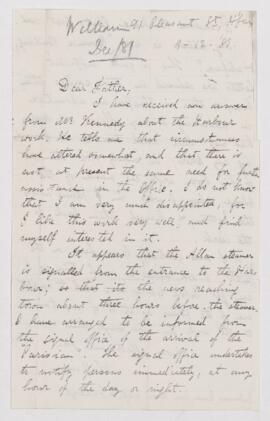 William 91 Pleasant St,
Dec/81
Dear Father,
I have received an answer
from Mr Kennedy about the Harbour
work. He tells me that circumstances
have altered somewhat, and that there is
not, at present the same need for further
assistance in the Office. I do not know
that I am very much disappointed, for
I like this work very well and find
myself interested in it.
It appears that the Allan steamer
is signalled from the entrance to the Har-
bour; so that its the news reaching
town about three hours before the steamer.
I have arranged to be informed from
the signal office of the arrival of the
"Parisian". The signal office undertakes
to notify persons immediately, at any
hour of the day or night.